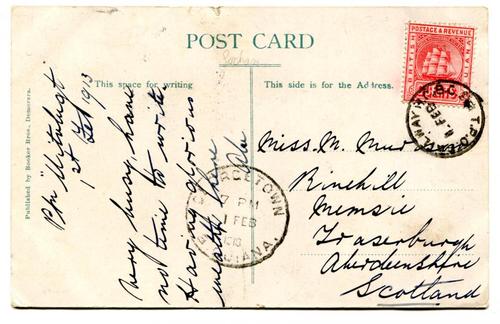 POST CARD
This space for writing
This side is for the Address.
Published by Booker Bros. Demerara.
1st Feb 1913
very busy, have
not time to write
Having glorious
weather here
BRITISH
POSTAGE & REVENUE
GUIANA
GEORGETOWN
7 PM
1 FEB
1913
GUIANA.
T.P.O.
RAILWAY
1 FEB
Miss. M.
Rinehill
Memsie
Fraserburgh
Aberdeenshire
Scotland